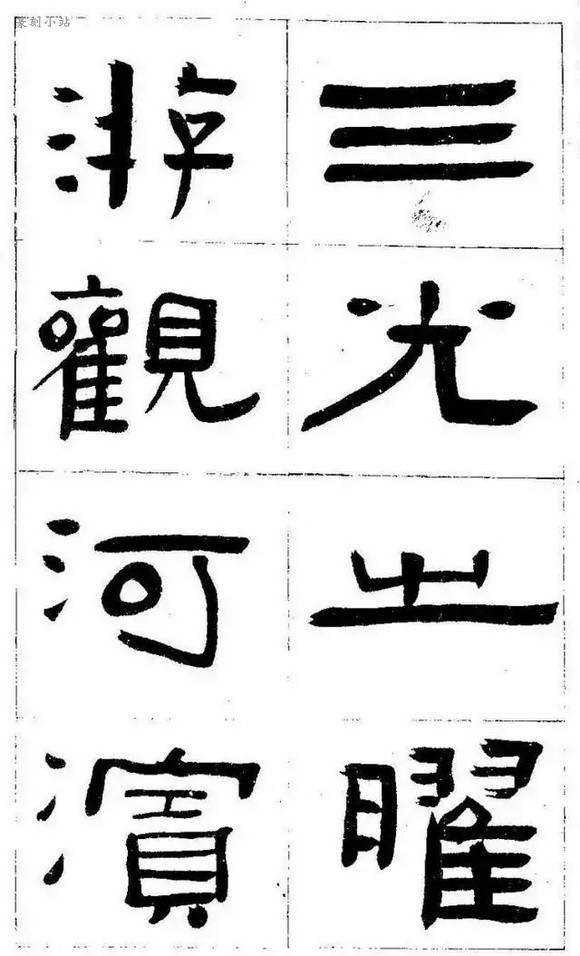 三光之曜
游觀河濱
篆刻小站